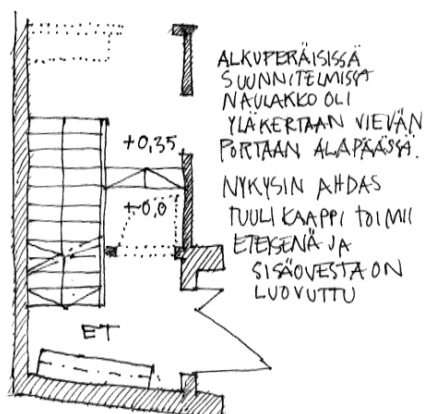 ALKUPERÄISISSÄ
SUUNNITELMISSA
NAULAKKO OLI
YLÄKERTAAN VIEVÄN
PORTAAN ALAPÄÄSSÄ.
NYKYSIN AHDAS
TUULIKAAPPI TOIMII
ETEISENÄ JA
SISÄOVESTA ON
LUOVUTTU
+0,35
±0,0
ET